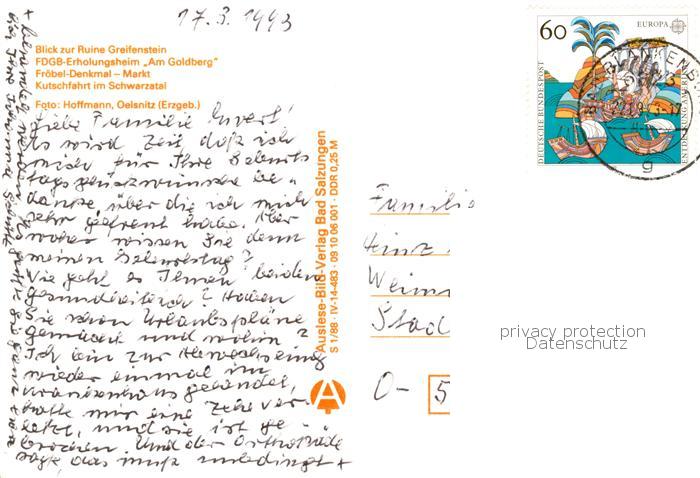 17.3.1993
Blick zur Ruine Greifenstein
FDGB-Erholungsheim „Am Goldberg"
Fröbel-Denkmal – Markt
Kutschfahrt im Schwarzatal
Foto: Hoffmann, Oelsnitz (Erzgeb.)
Liebe Familie
Es wird Zeit daß ich
mich für Ihre Geburts
tagsglückwünsche be-
danke, über die ich mich
sehr gefreut habe. Aber
woher wissen Sie denn
meinen Geburtstag?
Wie geht es Ihnen beiden
gesundheitlich? Haben
Sie schon Urlaubspläne
gemacht und wohin?
Ich bin zur Abwechslung
wieder einmal im
Krankenhaus gelandet,
hatte mir eine Zehe ver-
letzt, und sie ist ge-
brochen. Und der Orthopäde
sagte, das muß unbedingt +
+ behandelt werden
Auslese-Bild-Verlag Bad Salzungen
S 1/88 · IV-14-483 · 09 10 06 001 · DDR 0,25 M
A
60
EUROPA
CEPT
DEUTSCHE BUNDESPOST
g
Familie
Heinz
Weim
Stad
O- 5
privacy protection
Datenschutz